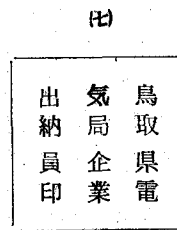 (七)
鳥取県電
気局企業
出納員印